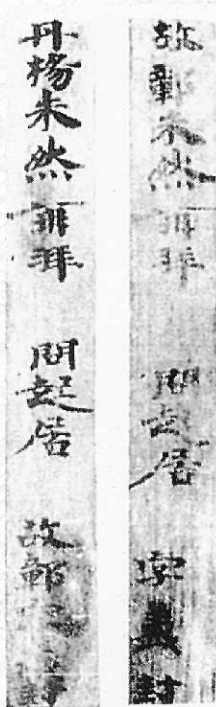 故鄣朱然再拜 問起居 字義封
丹楊朱然再拜 問起居 故鄣字義封